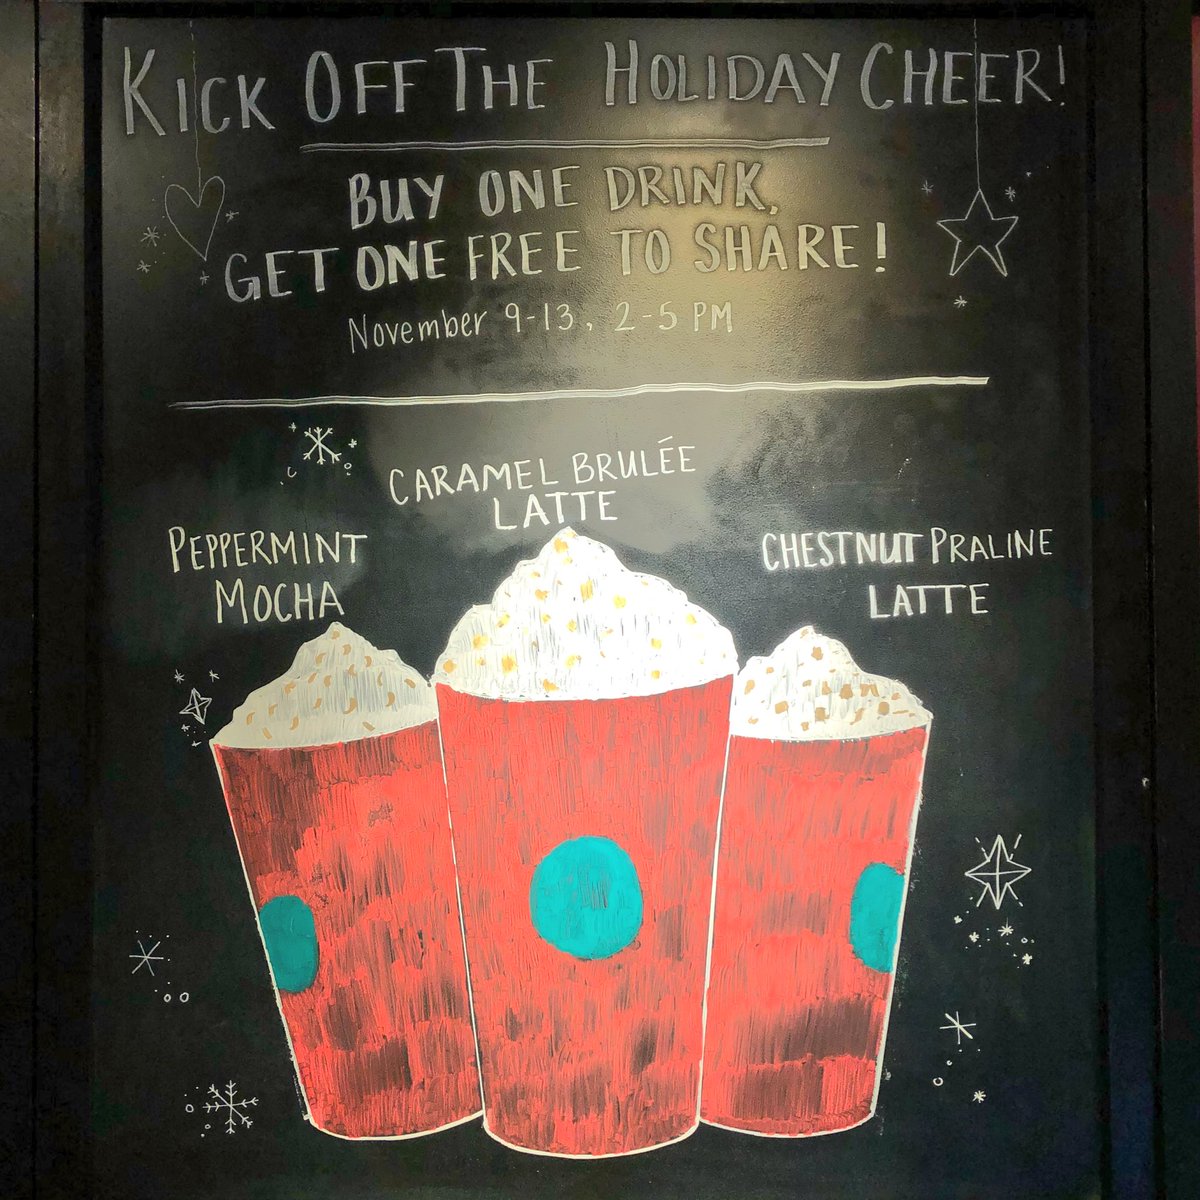 KICK OFF THE HOLIDAY CHEER!
BUY ONE DRINK,
GET ONE FREE TO SHARE!
November 9-13, 2-5 PM
CARAMEL BRULÉE
LATTE
PEPPERMINT
MOCHA
CHESTNUT PRALINE
LATTE